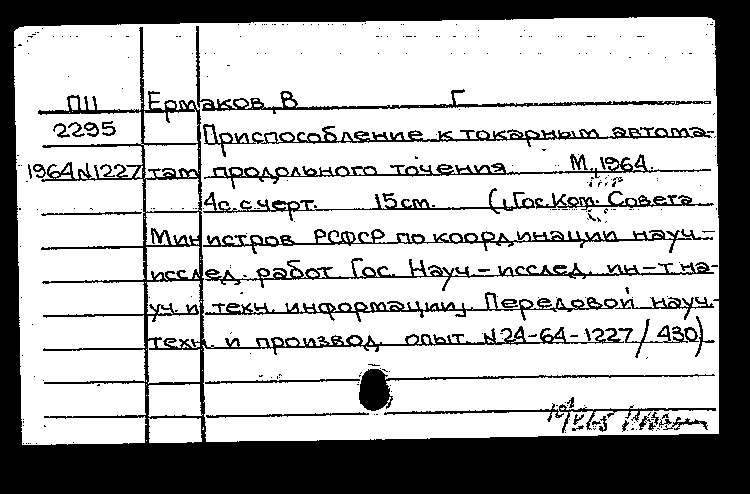 П11 Ермаков, В Г
2295 Приспособление к токарным автома-
1964N1227 там продольного точения М., 1964.
4с. с черт. 15см. (Гос. Ком. Совета
Министров РСФСР по координации науч.-
исслед. работ Гос. Науч-исслед. ин-т на-
уч. и техн. информации, Передовой науч.-
техн. и производ. опыт. N24-64-1227/430)